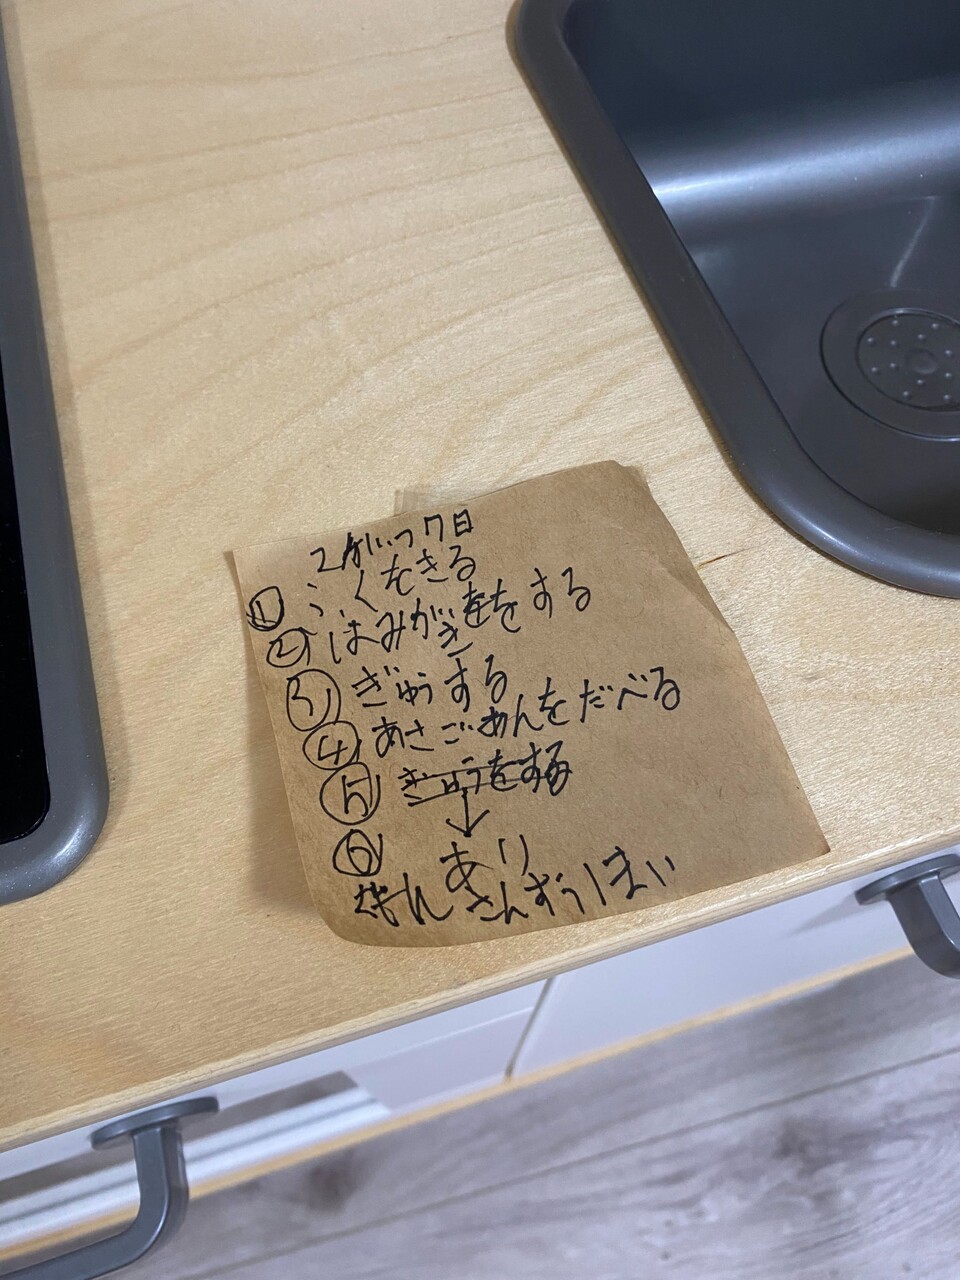 2がいつ7日
① ふくをきる
② はみがきををする
③ ぎゅうする
④ あさごあんをだべる
⑤ ぎゅうをする
↓
⑥ あり
さんすうしまい